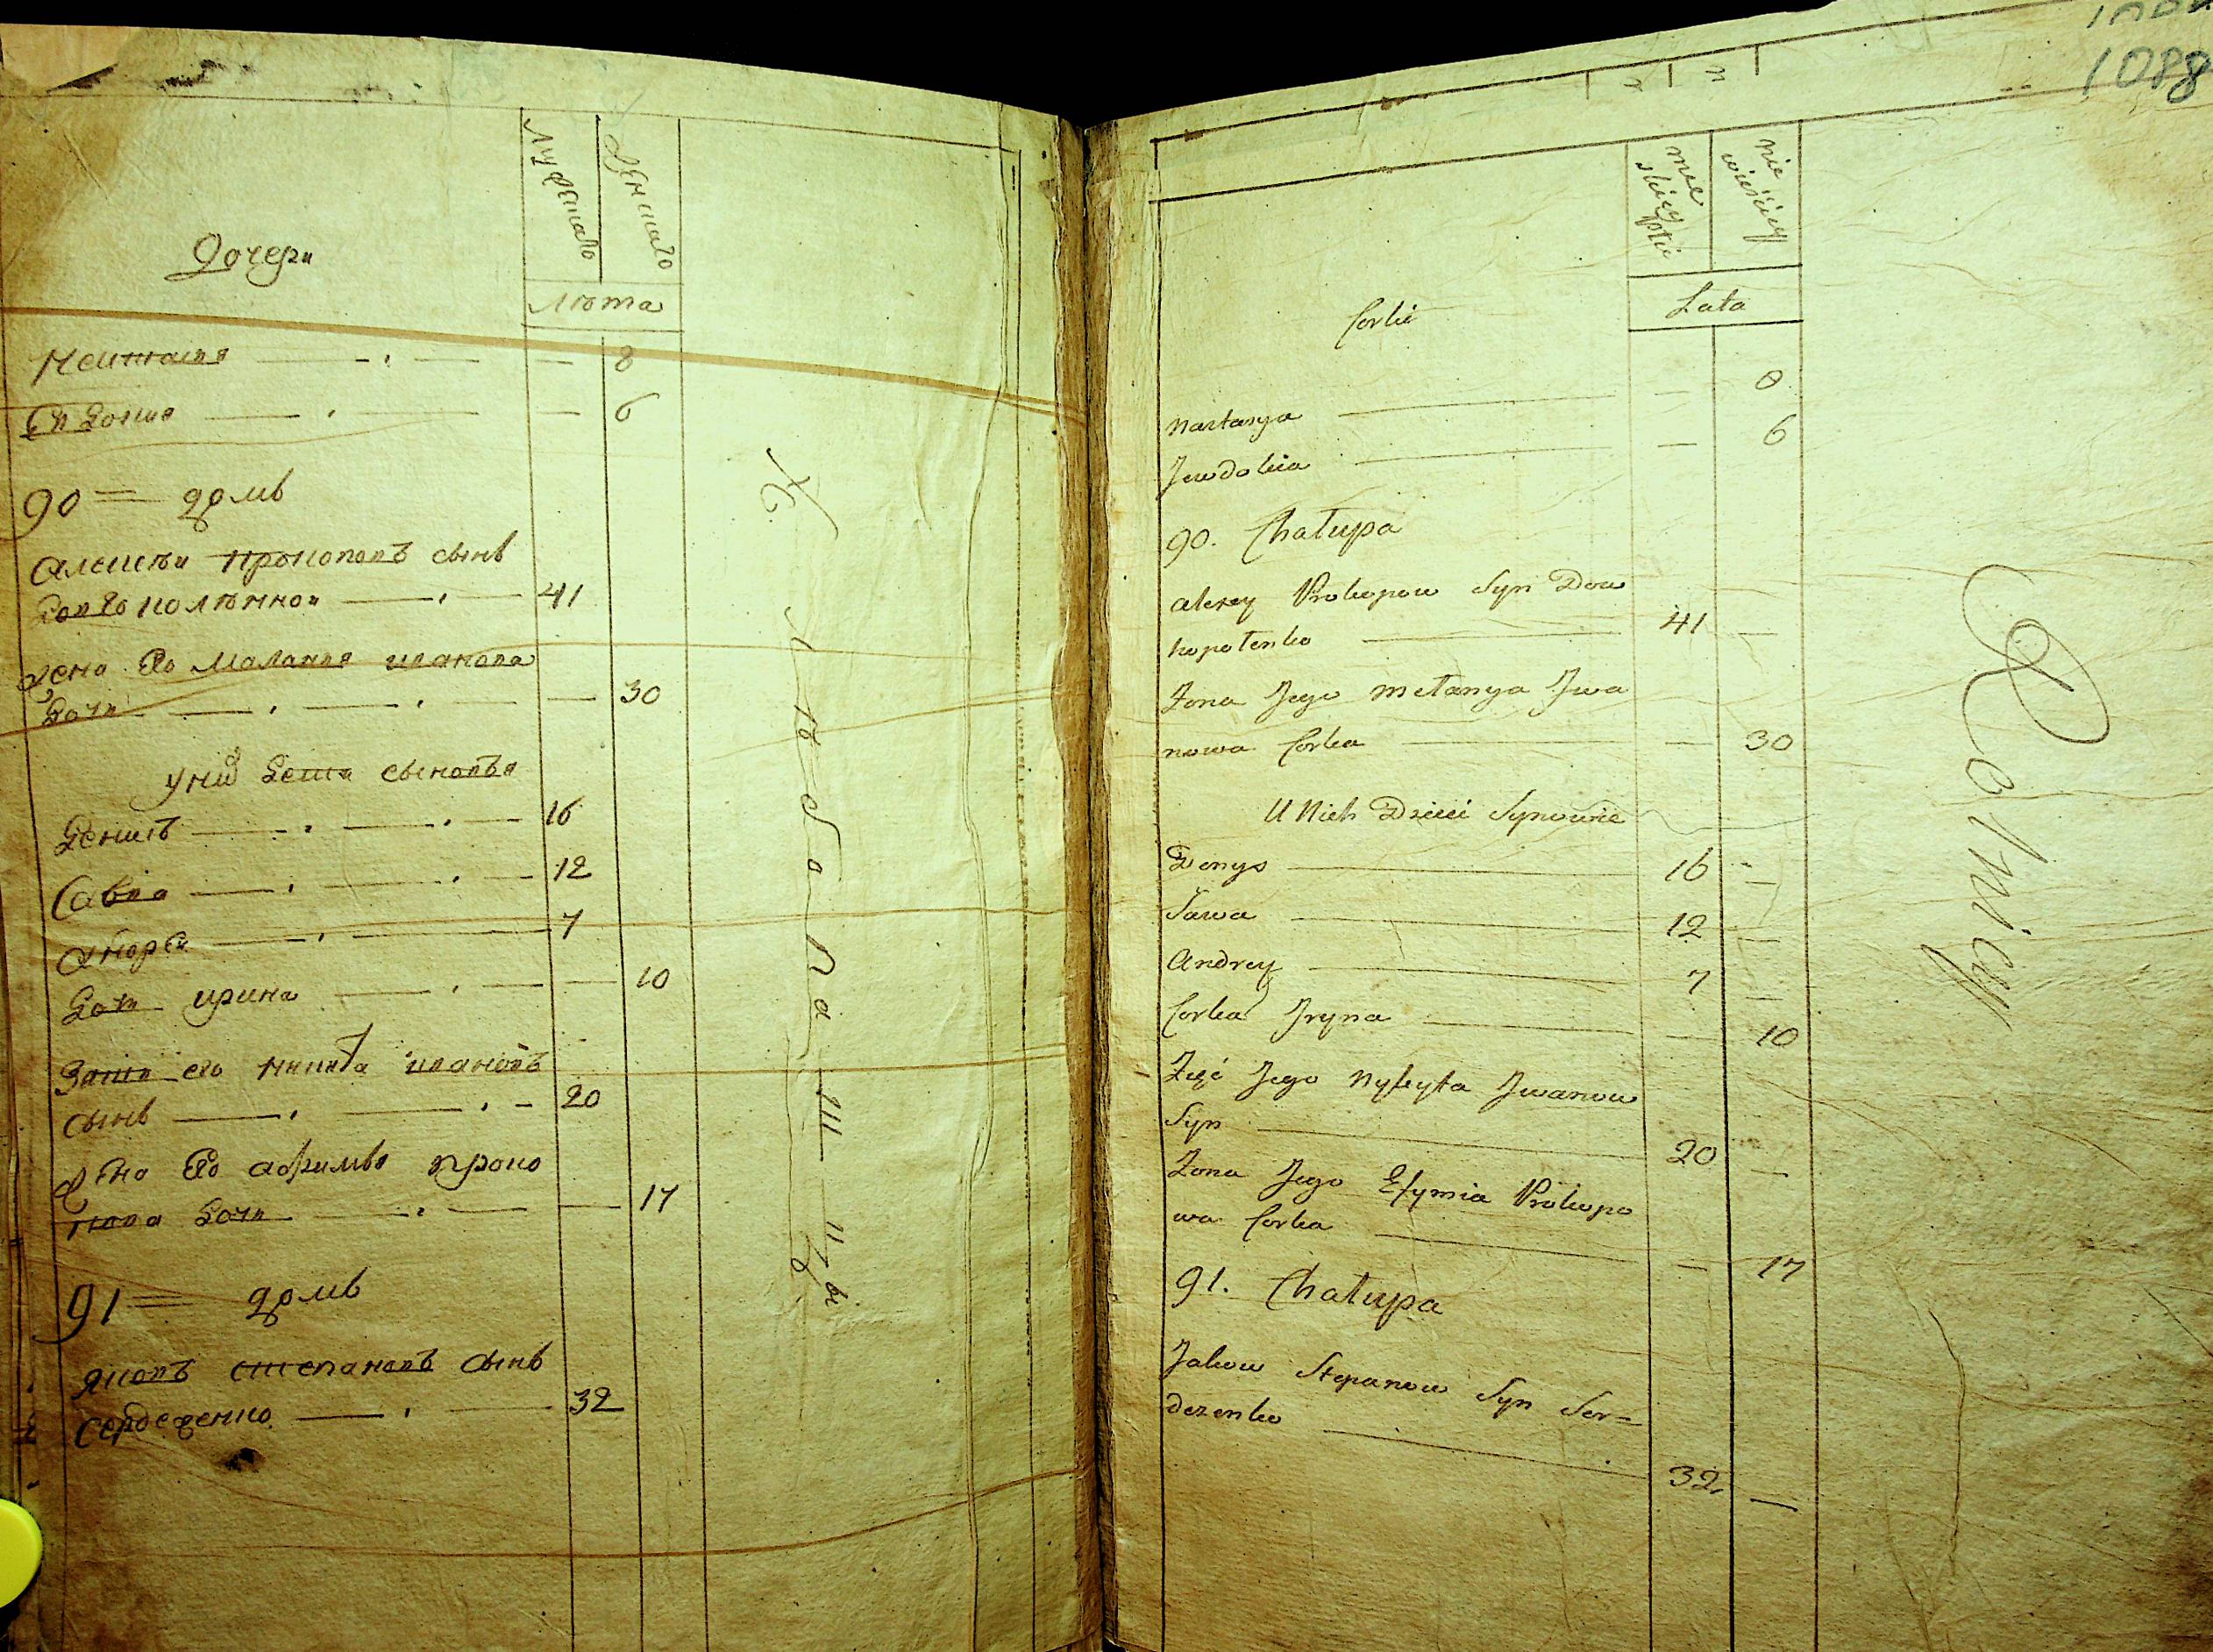 Дочери
Мужеска
Женска
Лѣта
Настасия — 8
Евдокия — 6
90 = домъ
Алексѣй Прокоповъ сынъ
Довгополѣнко — 41
Жена его Малания Иванова
дочь — 30
у них дети сыновья
Денисъ — 16
Савва — 12
Андрей — 7
Дочь Ирина — 10
Зять его Никита Ивановъ
сынъ — 20
Жена его Афимья Проко
пова дочь — 17
91 = домъ
Яковъ Степановъ сынъ
Сердеженко — 32
Хлѣбопашцы
1088
męskiey płci
niewieściey
Lata
Corki
Nastasya — 8
Jewdokia — 6
90. Chałupa
Alexey Prokopow Syn Dow
hopołenko — 41 —
Zona Jego Mełanya Iwa
nowa Corka — 30
U Nich Dzieci Synowie
Denys — 16 —
Sawa — 12 —
Andrey — 7 —
Corka Iryna — 10
Zięć Jego Nykyta Iwanow
Syn — 20 —
Zona Jego Efymia Prokopo
wa Corka — 17
91. Chałupa
Jakow Stepanow Syn Ser=
dezenko — 32 —
Rolnicy